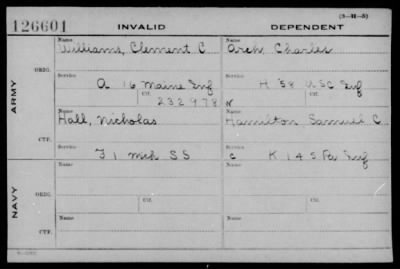 (3-11-5)
126601 INVALID DEPENDENT
Name Name
Williams, Clement C. Arch, Charles
ORIG.
Service Service
A 16 Maine Inf H 58 U S C Inf
Ctf. Ctf.
232978 W
ARMY
Name Name
Hall, Nicholas Hamilton, Samuel C
CTF.
Service Service
I 1 Mich S S C K 145 Pa Inf
Name Name
ORIG.
Service Ctf. Service Ctf.
NAVY
Name Name
CTF.
Service Service